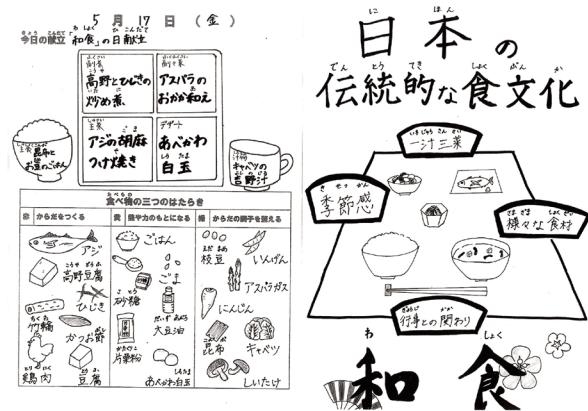 5月17日(金)
今日の献立「和食」の日献立
副菜
高野とひじきの
炒め煮
副々菜
アスパラの
おかか和え
主食
昆布と
お豆のごはん
主菜
アジの胡麻
つけ焼き
デザート
あべかわ
白玉
汁物
キャベツの
吉野汁
食べ物の三つのはたらき
赤 からだをつくる
黄 熱や力のもとになる
緑 からだの調子を整える
アジ
高野豆腐
ひじき
竹輪
かつお節
鶏肉
豆腐
ごはん
ごま
砂糖
大豆油
片栗粉
あべかわ白玉
枝豆
いんげん
アスパラガス
にんじん
昆布
キャベツ
しいたけ
日本の
伝統的な食文化
一汁三菜
季節感
様々な食材
行事との関わり
和食